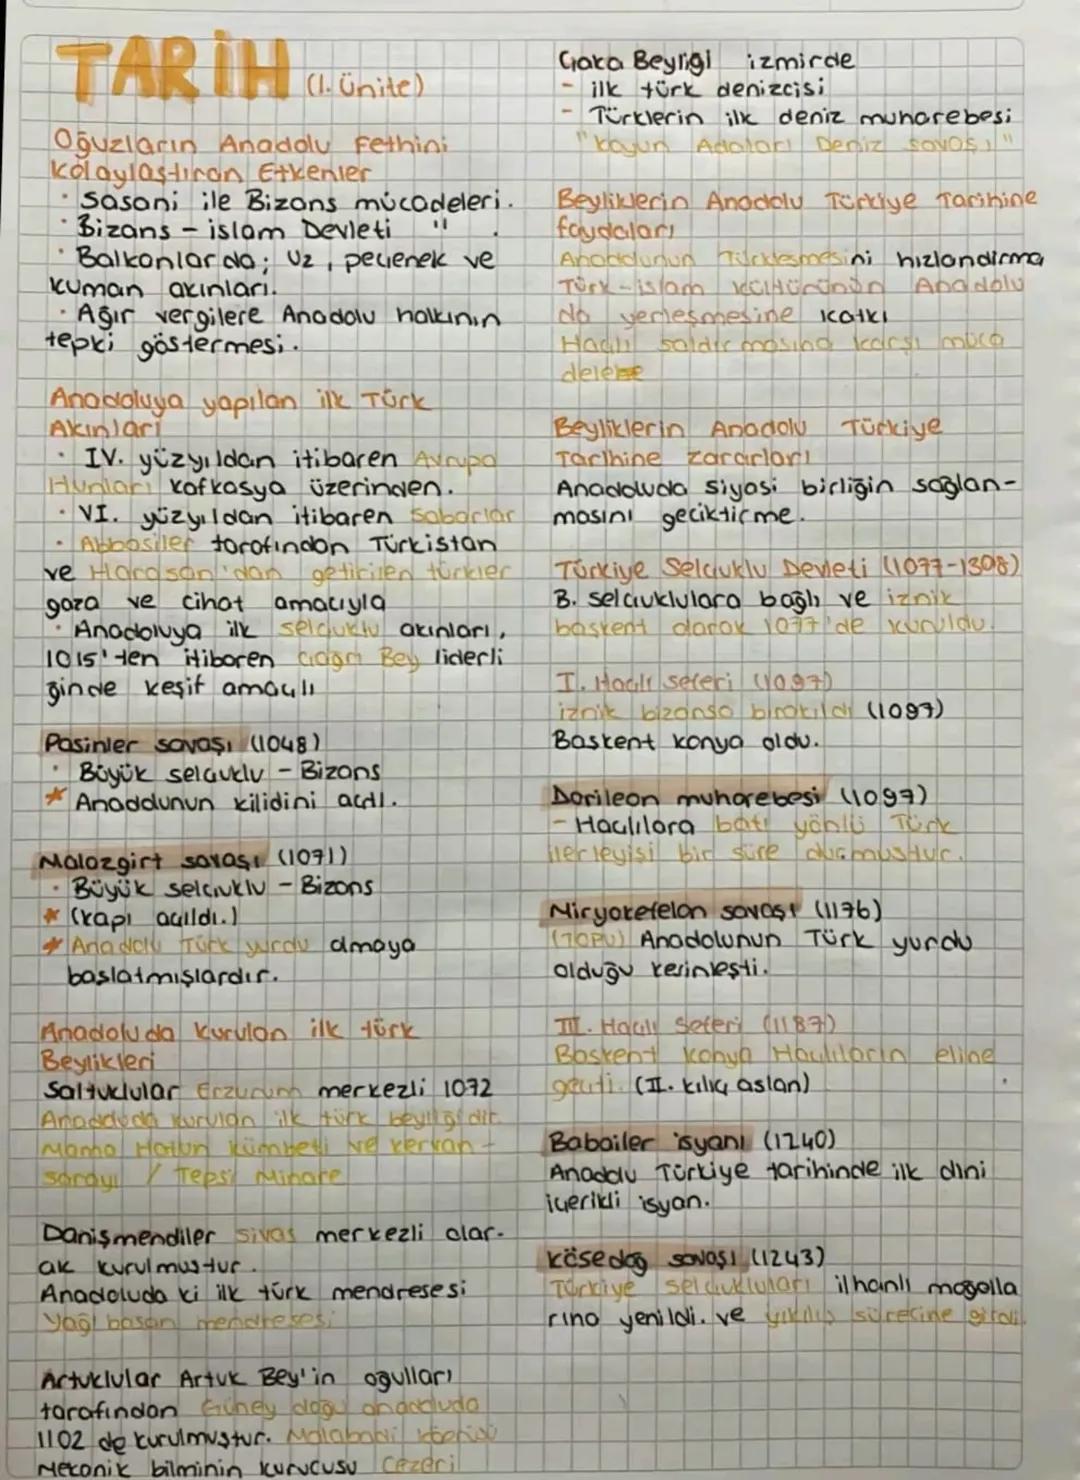 TARİH (1. Ünite)
Oğuzların Anadolu Fethini
Kolaylaştıran Etkenler
· Sasani ile Bizans mücadeleri.
· Bizans - islam Devleti " .
· Balkanlarda; Uz, peçenek ve
kuman akınları.
· Ağır vergilere Anadolu halkının
tepki göstermesi.
Anadoluya yapılan ilk Türk
Akınları
· IV. yüzyıldan itibaren Avrupa
Hunları kafkasya üzerinden.
· VI. yüzyıldan itibaren Sabarlar
· Abbasiler tarafından Türkistan
ve Horasan'dan getirilen türkler
gaza ve cihat amacıyla
· Anadoluya ilk selçuklu akınları,
1015'ten itibaren Çağrı Bey liderli
ğinde keşif amaçlı
Pasinler savaşı (1048)
· Büyük selçuklu - Bizans
* Anadolunun kilidini açtı.
Malazgirt savaşı (1071)
· Büyük selçuklu - Bizans
* (kapı açıldı.)
* Anadolu Türk yurdu olmaya
başlatmışlardır.
Anadoluda kurulan ilk türk
Beylikleri
Saltuklular Erzurum merkezli 1072
Anadoluda kurulan ilk türk beyliğidir.
Mama Hatun kümbeti ve kervan-
sarayı / Tepsi Minare
Danişmendiler sivas merkezli olar-
ak kurulmuştur.
Anadoluda ki ilk türk mendresesi
Yağı basan mendresesi
Artuklular Artuk Bey'in oğulları
tarafından Güney doğu anadoluda
1102 de kurulmuştur. Malabadi köprüsü
Mekanik bilminin kurucusu Cezeri
Çaka Beyliği izmirde
- ilk türk denizcisi
- Türklerin ilk deniz muharebesi
"Koyun Adaları Deniz savaşı"
Beyliklerin Anadolu Türkiye Tarihine
faydaları
Anadolunun Türkleşmesini hızlandırma
Türk-islam kültürünün Anadolu
da yerleşmesine katkı
Haçlı saldırmasına karşı müca
delele
Beyliklerin Anadolu Türkiye
Tarihine zararları
Anadoluda siyasi birliğin sağlan-
masını geciktirme.
Türkiye Selçuklu Devleti (1077-1308)
B. selçuklulara bağlı ve iznik
başkent olarak 1077'de kuruldu.
I. Haçlı seferi (1097)
iznik bizansa bırakıldı (1097)
Baskent konya oldu.
Dorileon muharebesi (1097)
- Haçlılara batı yönlü Türk
ilerleyişi bir süre durmuştur.
Miryokefelon savaşı (1176)
(TOPU) Anadolunun Türk yurdu
olduğu kesinleşti.
III. Haçlı Seferi (1187)
Baskent konya Haçlıların eline
geçti. (II. kılıç aslan)
Babailer isyanı (1240)
Anadolu Türkiye tarihinde ilk dini
içerikli isyan.
Kösedağ savaşı (1243)
Türkiye selçukluları ilhanlı moğolla
rına yenildi. ve yıkılış sürecine girdi.